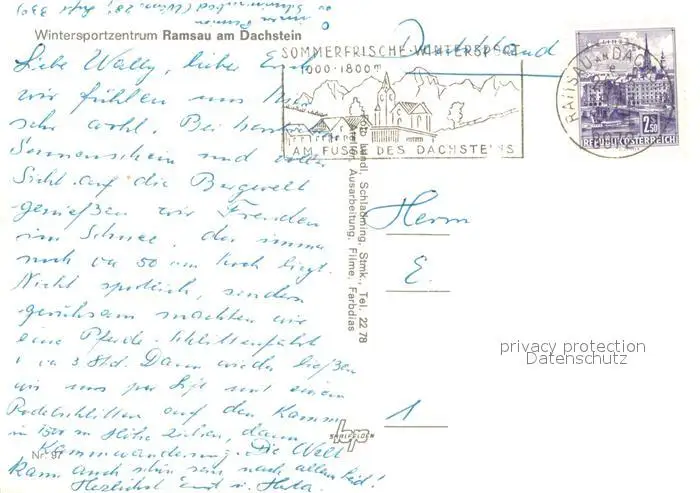 Wintersportzentrum Ramsau am Dachstein
Liebe Wally, lieber
wir fühlen uns hier
sehr wohl. Bei
Sonnenschein und
Sicht auf die Bergwelt
genießen wir Freuden
im Schnee, der immer
noch ca 50 cm hoch liegt.
Nicht sportlich, sondern
geruhsam machten wir
eine Pferde-Schlittenfahrt
ca 3 Std. Dann wieder ließen
wir uns per Lift mit einem
Rodelschlitten auf den Kamm
in 1500 m Höhe ziehen, dann
Kammwanderung. Die Welt
kann auch schön sein nach allem Leid!
Herzlichst Ernst u. Herta.
Nr. 97
SOMMERFRISCHE-WINTERSPORT
1000-1800m
AM FUSSE DES DACHSTEINS
RAMSAU AM DACHSTEIN
2.50
REPUBLIK ÖSTERREICH
Deutschland
Schladming, Stmk., Tel. 22 78
Ausarbeitung, Filme, Farbdias
Herrn
E.
1
privacy protection
Datenschutz